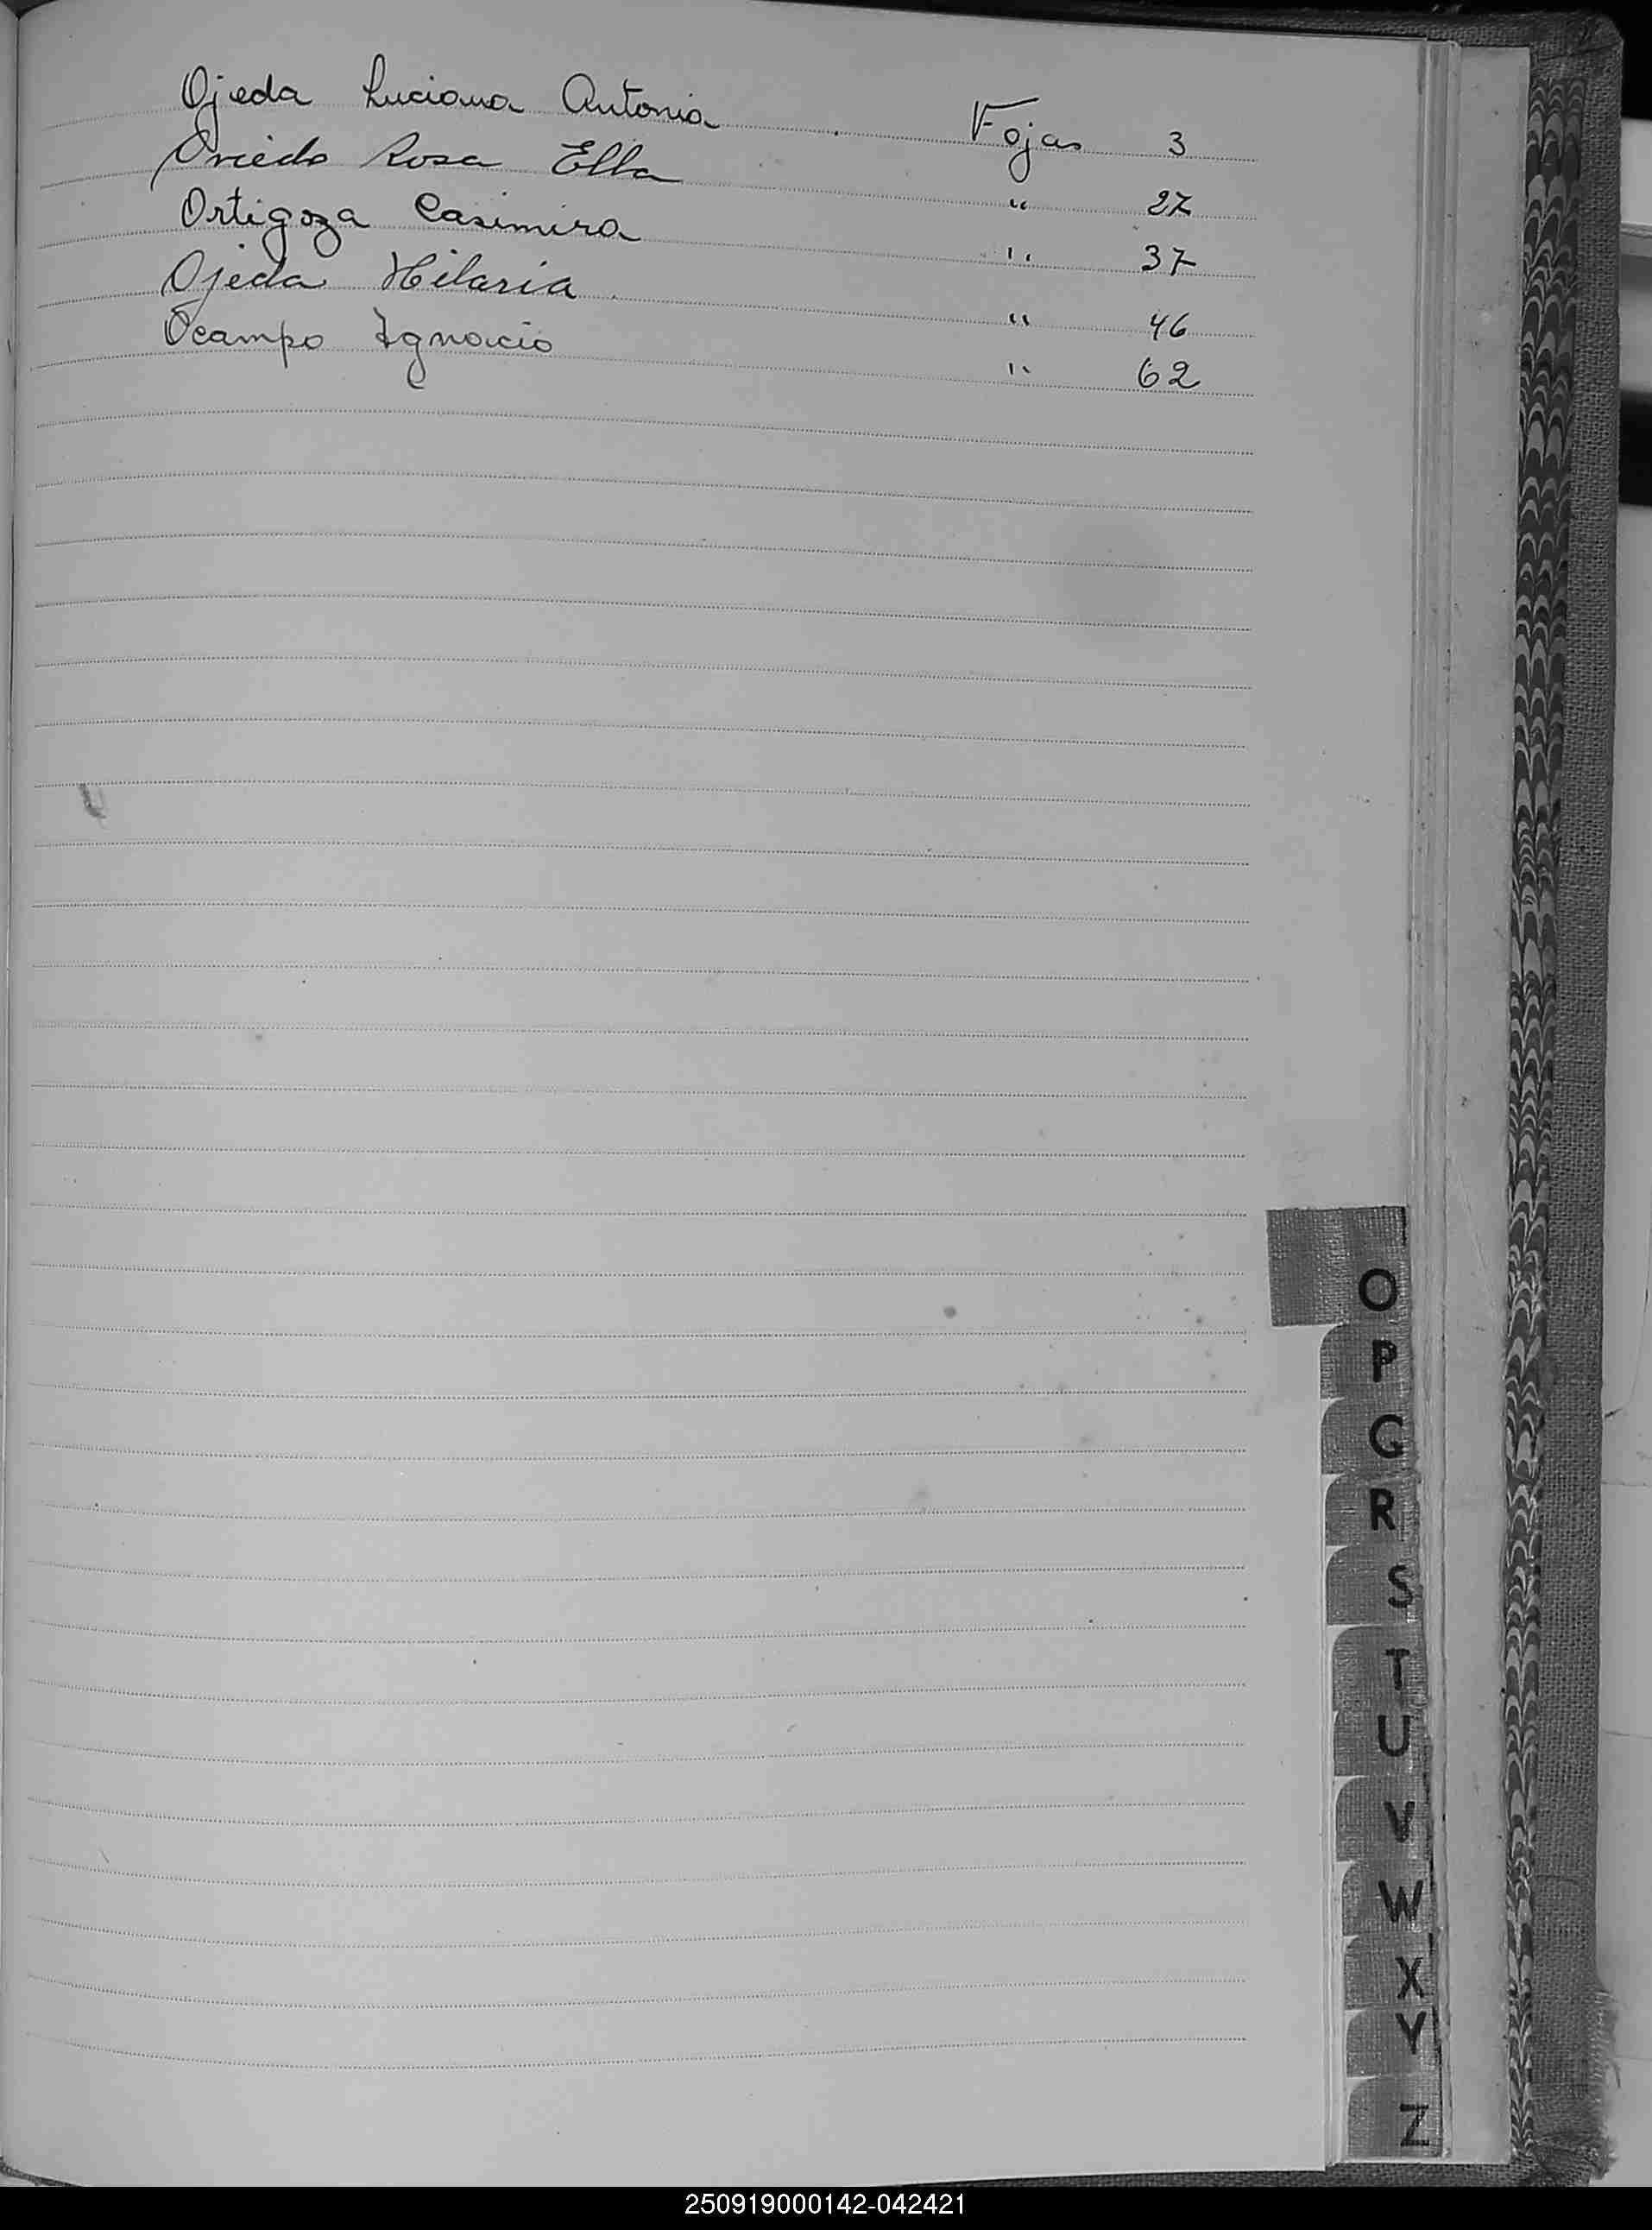 Ojeda Luciana Antonia Fojas 3
Oviedo Rosa Elba " 27
Ortigoza Casimira " 37
Ojeda Hilaria " 46
Ocampo Ignacio " 62
O
P
Q
R
S
T
U
V
W
X
Y
Z
250919000142-042421